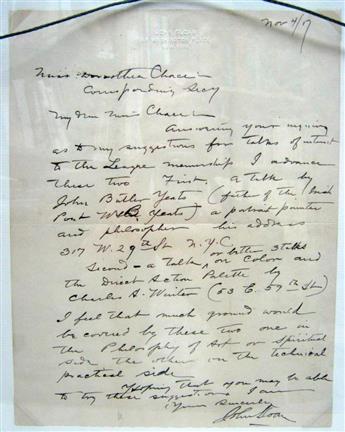 JOHN SLOAN
Nov 4/17
Miss Dorothea Chace
Corresponding Secy
My dear Miss Chace
Answering your inquiry
as to my suggestions for talks of interest
to the League membership I advance
these two First. A talk by
John Butler Yeats (father of the Irish
Poet W B Yeats) a portrait painter
and philosopher his address
317 W. 29th St N.Y.C.
Second - a talk, or better 3 talks on Color and
the Direct Action Palette by
Charles A. Winter (53 E. 59th St)
I feel that much ground would
be covered by these two one in
the Philosophy of Art or spiritual
side the other in the technical
practical side
Hoping that you may be able
to try these suggestions I am
Yours Sincerely
John Sloan